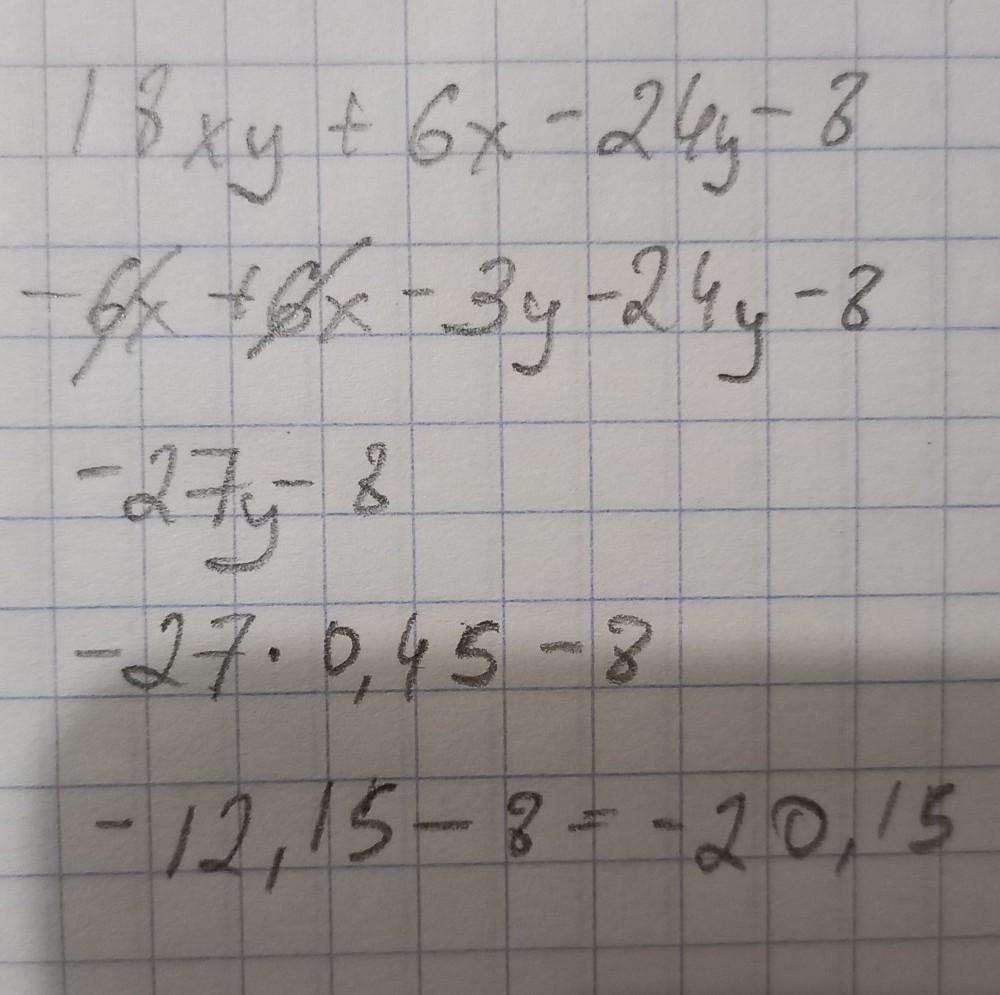 18xy + 6x - 24y - 8
- 6x + 6x - 3y - 24y - 8
-27y - 8
-27 · 0,45 - 8
-12,15 - 8 = -20,15